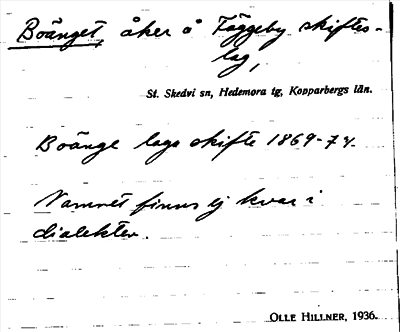 Boänget, åker å Fäggeby skiftes-
lag,
St. Skedvi sn, Hedemora tg, Kopparbergs län.
Boänge laga skifte 1869-74.
Namnet finns ej kvar i
dialekten.
OLLE HILLNER, 1936.